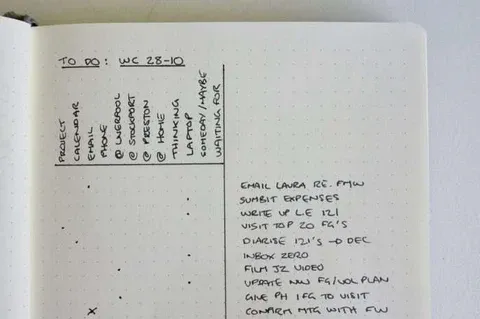 TO DO: WC 28-10
PROJECT
CALENDAR
EMAIL
PHONE
@ LIVERPOOL
@ STOCKPORT
@ PRESTON
@ HOME
THINKING
LAPTOP
SOMEDAY/MAYBE
WAITING FOR
EMAIL LAURA RE. FMW
SUMBIT EXPENSES
WRITE UP L.E 121
VISIT TOP 20 FG'S
DIARISE 121'S → DEC
INBOX ZERO
FILM J2 VIDEO
UPDATE NW FG/VOL PLAN
GIVE PH 1 FG TO VISIT
X CONFIRM MTG WITH FW